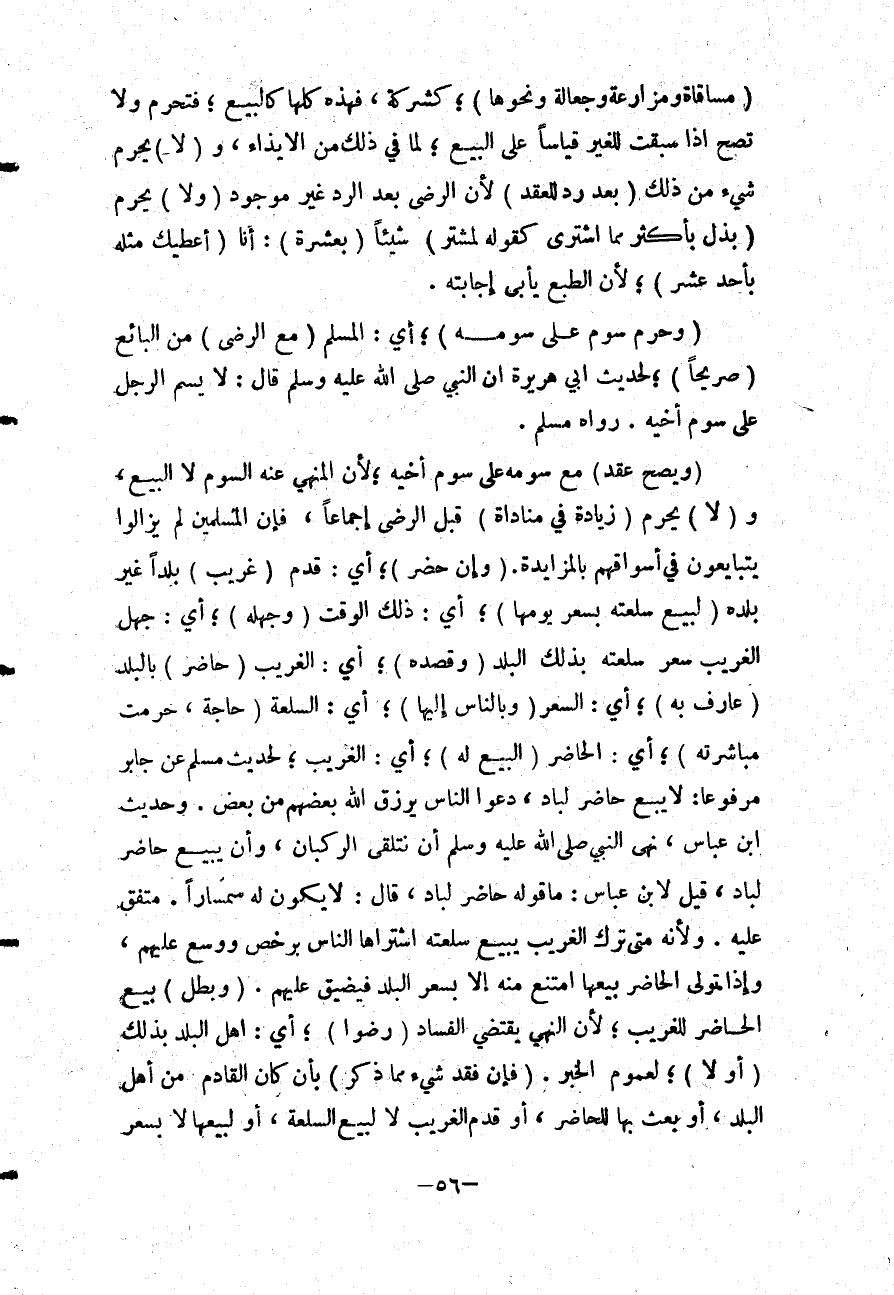 ( مساقاة ومزارعة وجعالة ونحوها ) ؛ كشركة ، فهذه كلها كالبيع ؛ فتحرم ولا
تصح اذا سبقت للغير قياساً على البيع ؛ لما في ذلك من الايذاء ، و ( لا ) يحرم
شيء من ذلك ( بعد رد للعقد ) لأن الرضى بعد الرد غير موجود ( ولا ) يحرم
( بذل بأكثر مما اشترى كقوله لمشتر ) شيئاً ( بعشرة ) : أنا ( أعطيك مثله
بأحد عشر ) ؛ لأن الطبع يأبى إجابته .
( وحرم سوم على سومه ) ؛ أي : المسلم ( مع الرضى ) من البائع
( صريحاً ) ؛ لحديث ابي هريرة ان النبي صلى الله عليه وسلم قال : لا يسم الرجل
على سوم أخيه . رواه مسلم .
( ويصح عقد ) مع سومه على سوم أخيه ؛ لأن المنهي عنه السوم لا البيع ،
و ( لا ) يحرم ( زيادة في مناداة ) قبل الرضى إجماعاً ، فإن المسلمين لم يزالوا
يتبايعون في أسواقهم بالمزايدة . ( وإن حضر ) ؛ أي : قدم ( غريب ) بلداً غير
بلده ( لبيع سلعته بسعر يومها ) ؛ أي : ذلك الوقت ( وجهله ) ؛ أي : جهل
الغريب سعر سلعته بذلك البلد ( وقصده ) ؛ أي : الغريب ( حاضر ) بالبلد
( عارف به ) ؛ أي : السعر ( وبالناس إليها ) ؛ أي : السلعة ( حاجة ، حرمت
مباشرته ) ؛ أي : الحاضر ( البيع له ) ؛ أي : الغريب ؛ لحديث مسلم عن جابر
مرفوعا : لا يبيع حاضر لباد ، دعوا الناس يرزق الله بعضهم من بعض . وحديث
ابن عباس ، نهى النبي صلى الله عليه وسلم أن نتلقى الركبان ، وأن يبيع حاضر
لباد ، قيل لابن عباس : ماقوله حاضر لباد ، قال : لا يكون له سمساراً . متفق
عليه . ولأنه متى ترك الغريب يبيع سلعته اشتراها الناس برخص ووسع عليهم ،
وإذا تولى الحاضر بيعها امتنع منه إلا بسعر البلد فيضيق عليهم . ( وبطل ) بيع
الحاضر للغريب ؛ لأن النهي يقتضي الفساد ( رضوا ) ؛ أي : اهل البلد بذلك
( أو لا ) ؛ لعموم الخبر . ( فإن فقد شيء مما ذكر ) بأن كان القادم من أهل
البلد ، أو بعث بها للحاضر ، أو قدم الغريب لا لبيع السلعة ، أو لبيعها لا بسعر
–٥٦–